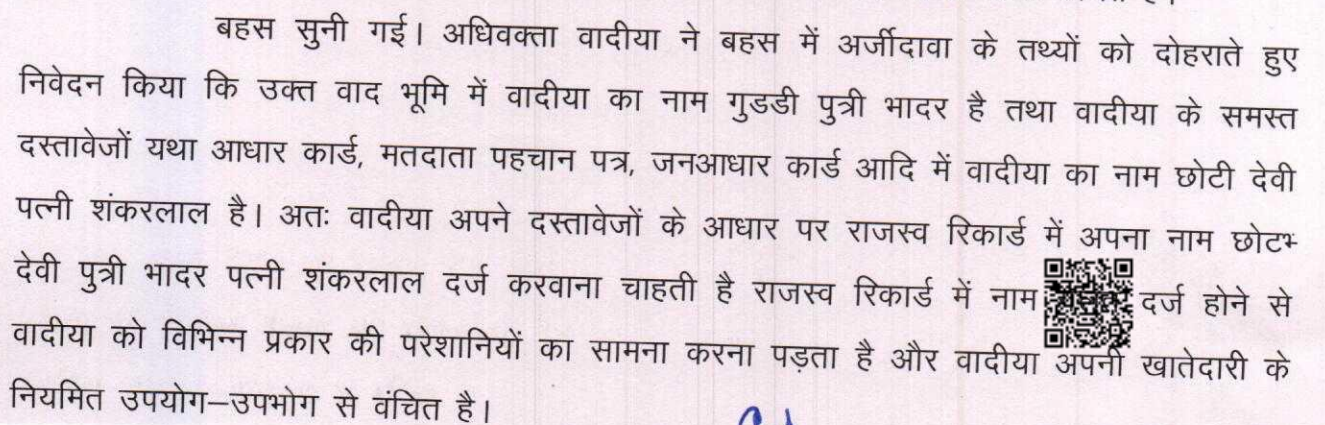 बहस सुनी गई। अधिवक्ता वादीया ने बहस में अर्जीदावा के तथ्यों को दोहराते हुए
निवेदन किया कि उक्त वाद भूमि में वादीया का नाम गुडडी पुत्री भादर है तथा वादीया के समस्त
दस्तावेजों यथा आधार कार्ड, मतदाता पहचान पत्र, जनआधार कार्ड आदि में वादीया का नाम छोटी देवी
पत्नी शंकरलाल है। अतः वादीया अपने दस्तावेजों के आधार पर राजस्व रिकार्ड में अपना नाम छोटभ्
देवी पुत्री भादर पत्नी शंकरलाल दर्ज करवाना चाहती है राजस्व रिकार्ड में नाम दर्ज होने से
वादीया को विभिन्न प्रकार की परेशानियों का सामना करना पड़ता है और वादीया अपनी खातेदारी के
नियमित उपयोग–उपभोग से वंचित है।